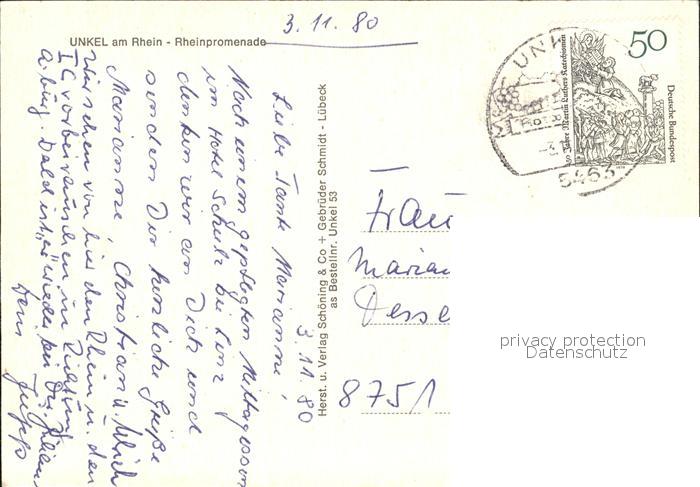 3.11.80
UNKEL am Rhein - Rheinpromenade
3.11.80
Liebe Tante Marianne!
Nach einem gepflegten Mittagessen
im Hotel Schulz bei Linz
denken wir an Dich und
senden Dir herzliche Grüße
Marianne, Christian u. Ulrich
Wir sehen von hier den Rhein u. den
IC vorbeirauschen in Richtung
A'burg. Bald ist "er" wieder bei Dir.
Dein
Herst. u. Verlag Schöning & Co + Gebrüder Schmidt - Lübeck
as Bestellnr. Unkel 53
UNK
5463
50
450 Jahre Martin Luthers Katechismen
Deutsche Bundespost
Frau
Marian
Desse
8751
privacy protection
Datenschutz